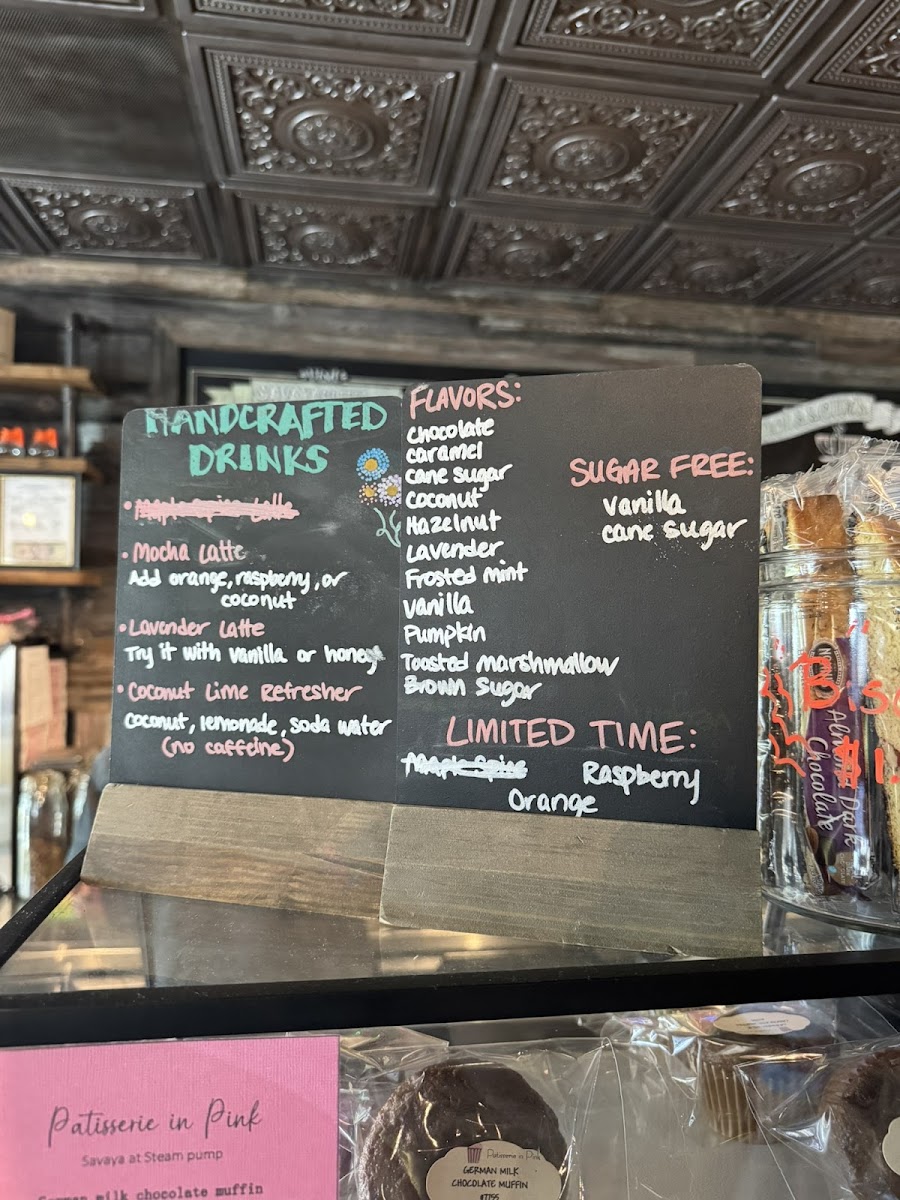 HANDCRAFTED
DRINKS
• Maple Spice Latte
• Mocha Latte
Add orange, raspberry, or
coconut
• Lavender Latte
Try it with vanilla or honey
• Coconut Lime Refresher
coconut, lemonade, soda water
(no caffeine)
FLAVORS:
chocolate
caramel
cane sugar
coconut
Hazelnut
Lavender
Frosted mint
vanilla
Pumpkin
Toasted marshmallow
Brown Sugar
SUGAR FREE:
vanilla
cane sugar
LIMITED TIME:
Maple Spice Raspberry
Orange
Almond Dark
Chocolate
$1.
Patisserie in Pink
Savaya at Steam pump
German milk chocolate muffin
Patisserie in Pink
GERMAN MILK
CHOCOLATE MUFFIN